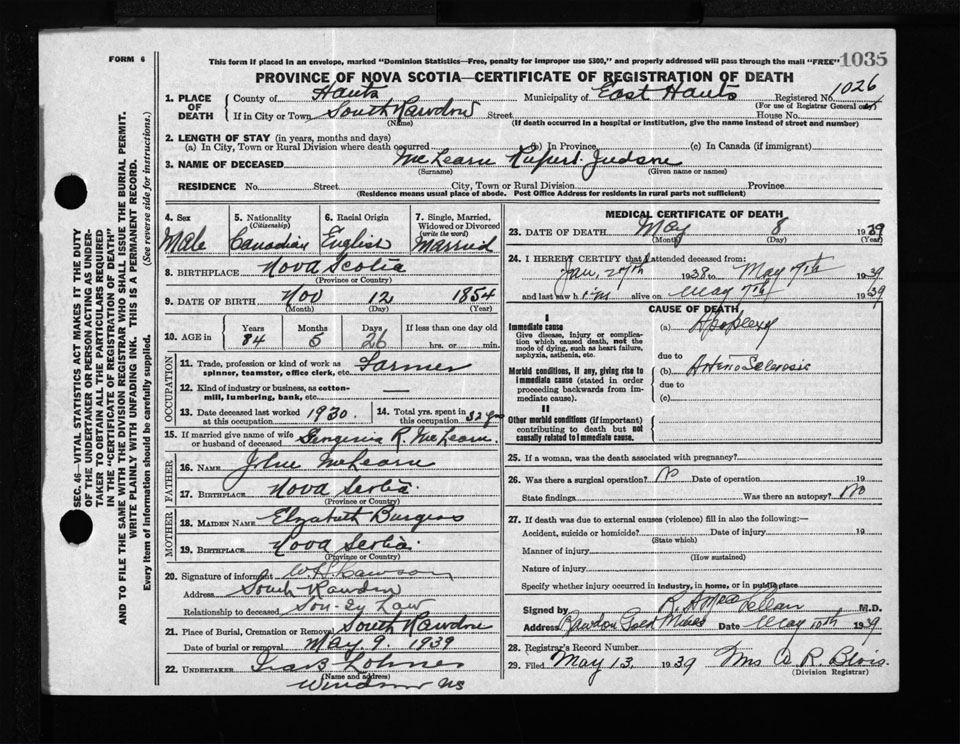 FORM 6
This form if placed in an envelope, marked "Dominion Statistics—Free, penalty for improper use $300," and properly addressed will pass through the mail "FREE" 1035
PROVINCE OF NOVA SCOTIA—CERTIFICATE OF REGISTRATION OF DEATH
1. PLACE OF DEATH
County of Hants Municipality of East Hants Registered No. 1026
(For use of Registrar General only)
If in City or Town South Rawdon Street House No.
(Name) (If death occurred in a hospital or institution, give the name instead of street and number)
2. LENGTH OF STAY (in years, months and days)
(a) In City, Town or Rural Division where death occurred (b) In Province (c) In Canada (if immigrant)
3. NAME OF DECEASED McLearn Rupert Judson
(Surname) (Given name or names)
RESIDENCE No. Street City, Town or Rural Division Province
(Residence means usual place of abode. Post Office Address for residents in rural parts not sufficient)
4. Sex Male
5. Nationality (Citizenship) Canadian
6. Racial Origin English
7. Single, Married, Widowed or Divorced (write the word) Married
8. BIRTHPLACE Nova Scotia
(Province or Country)
9. DATE OF BIRTH Nov 12 1854
(Month) (Day) (Year)
10. AGE in Years Months Days If less than one day old
84 5 26 hrs. or min.
OCCUPATION
11. Trade, profession or kind of work as spinner, teamster, office clerk, etc. Farmer
12. Kind of industry or business, as cotton-mill, lumbering, bank, etc. —
13. Date deceased last worked at this occupation 1930
14. Total yrs. spent in this occupation
15. If married give name of wife or husband of deceased R. McLearn
FATHER
16. NAME John McLearn
17. BIRTHPLACE Nova Scotia
(Province or Country)
MOTHER
18. MAIDEN NAME Elizabeth Burgess
19. BIRTHPLACE Nova Scotia
(Province or Country)
20. Signature of informant
Address South Rawdon
Relationship to deceased Son-By Law
21. Place of Burial, Cremation or Removal South Rawdon
Date of burial or removal May 9 1939
22. UNDERTAKER
(Name and address)
Windsor NS
MEDICAL CERTIFICATE OF DEATH
23. DATE OF DEATH May 8 1939
(Month) (Day) (Year)
24. I HEREBY CERTIFY that I attended deceased from:
Jan, 27th 1938 to May 7th 1939
and last saw him alive on May 7th 1939
CAUSE OF DEATH
I
Immediate cause (a) Apoplexy
Give disease, injury or complication which caused death, not the mode of dying, such as heart failure, asphyxia, asthenia, etc.
due to
Morbid conditions, if any, giving rise to immediate cause (stated in order proceeding backwards from immediate cause). (b) Arterio Sclerosis
due to
(c)
II
Other morbid conditions (if important) contributing to death but not causally related to immediate cause.
25. If a woman, was the death associated with pregnancy?
26. Was there a surgical operation? No Date of operation 19
State findings Was there an autopsy? No
27. If death was due to external causes (violence) fill in also the following:—
Accident, suicide or homicide? Date of injury 19
(State which)
Manner of injury
(How sustained)
Nature of injury
Specify whether injury occurred in industry, in home, or in public place
Signed by M.D.
Address Rawdon Gold Mines Date May 10th 1939
28. Registrar's Record Number
29. Filed May 13, 1939 Mrs A. R. Blois.
(Division Registrar)
SEC. 46—VITAL STATISTICS ACT MAKES IT THE DUTY
OF THE UNDERTAKER OR PERSON ACTING AS UNDER-
TAKER TO OBTAIN ALL THE PARTICULARS REQUIRED
IN THE "CERTIFICATE OF REGISTRATION OF DEATH"
AND TO FILE THE SAME WITH THE DIVISION REGISTRAR WHO SHALL ISSUE THE BURIAL PERMIT.
WRITE PLAINLY WITH UNFADING INK. THIS IS A PERMANENT RECORD.
Every item of information should be carefully supplied. (See reverse side for instructions.)